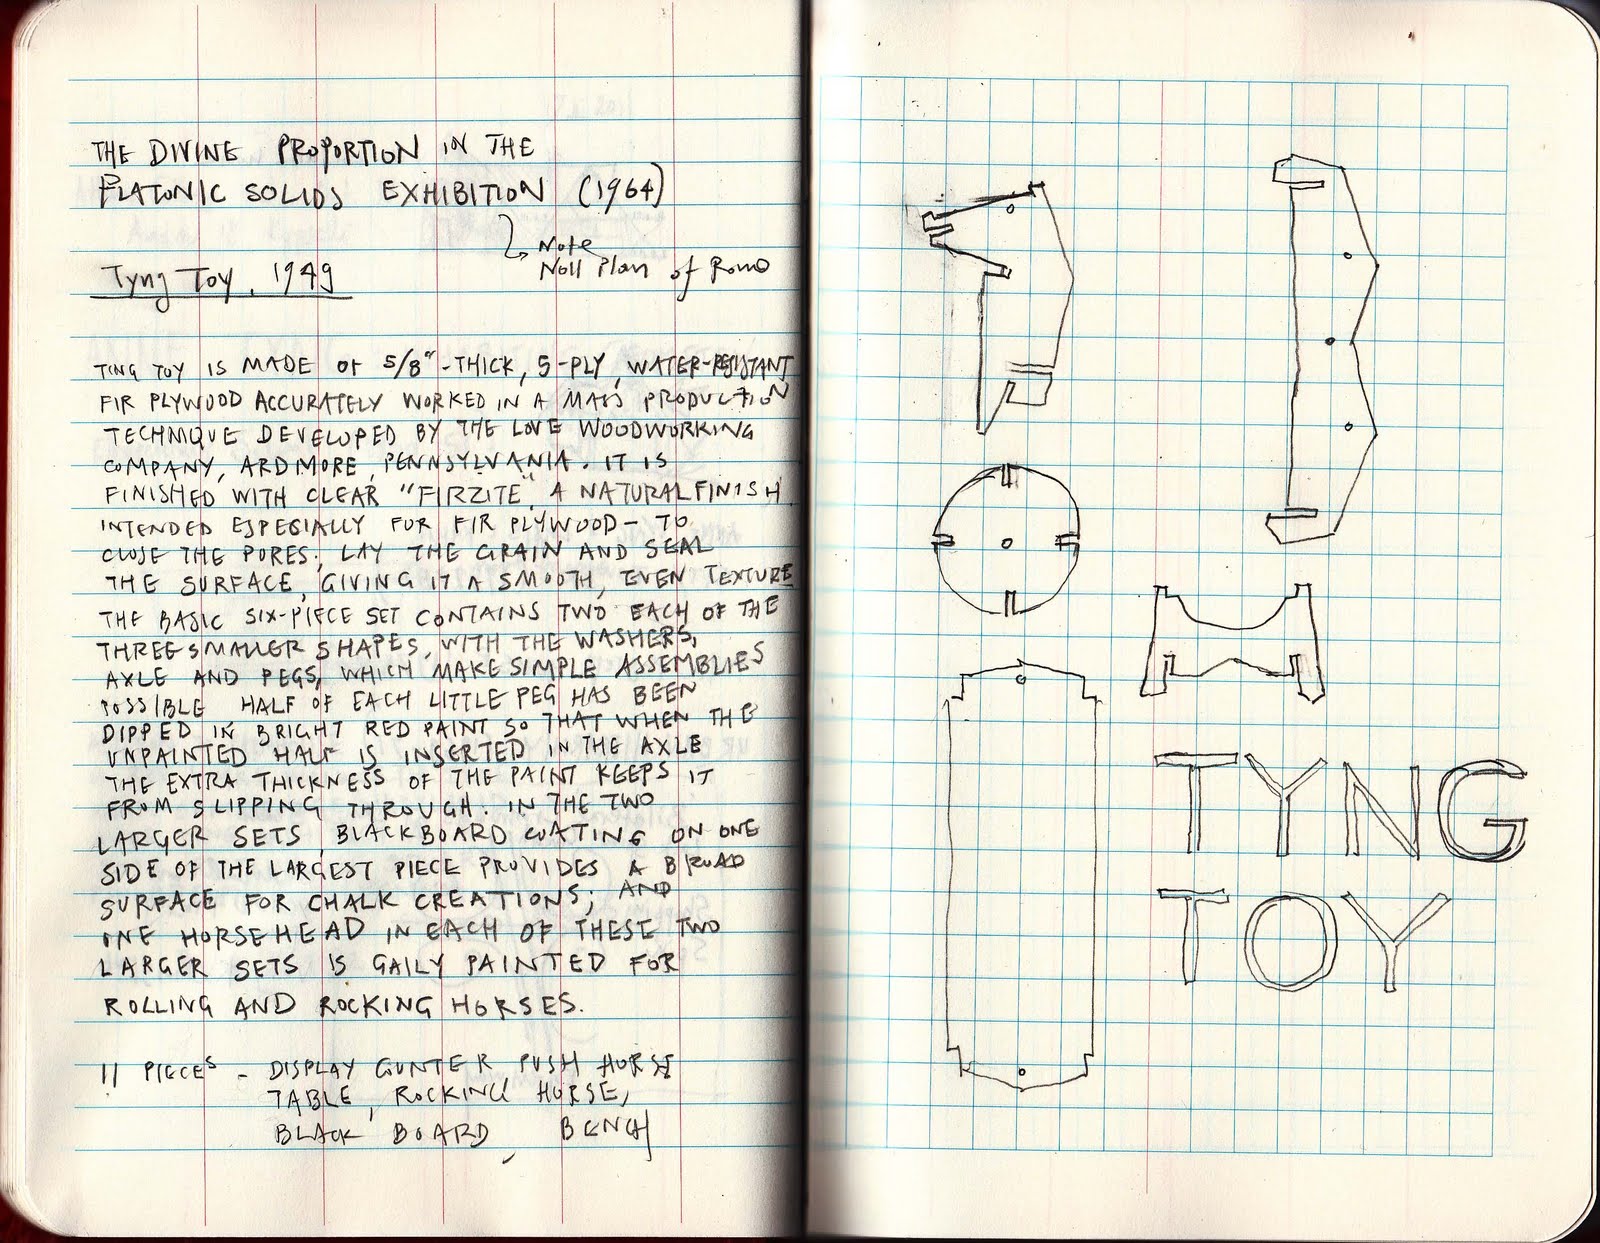 THE DIVINE PROPORTION IN THE
PLATONIC SOLIDS EXHIBITION (1964)
Note
Noll Plan of Rome
Tyng Toy, 1949
TING TOY IS MADE OF 5/8"-THICK, 5-PLY, WATER-RESISTANT
FIR PLYWOOD ACCURATELY WORKED IN A MASS PRODUCTION
TECHNIQUE DEVELOPED BY THE LOVE WOODWORKING
COMPANY, ARDMORE, PENNSYLVANIA. IT IS
FINISHED WITH CLEAR "FIRZITE", A NATURAL FINISH
INTENDED ESPECIALLY FOR FIR PLYWOOD - TO
CLOSE THE PORES, LAY THE GRAIN AND SEAL
THE SURFACE, GIVING IT A SMOOTH, EVEN TEXTURE
THE BASIC SIX-PIECE SET CONTAINS TWO EACH OF THE
THREE SMALLER SHAPES, WITH THE WASHERS,
AXLE AND PEGS, WHICH MAKE SIMPLE ASSEMBLIES
POSSIBLE HALF OF EACH LITTLE PEG HAS BEEN
DIPPED IN BRIGHT RED PAINT SO THAT WHEN THE
UNPAINTED HALF IS INSERTED IN THE AXLE
THE EXTRA THICKNESS OF THE PAINT KEEPS IT
FROM SLIPPING THROUGH. IN THE TWO
LARGER SETS, BLACKBOARD COATING ON ONE
SIDE OF THE LARGEST PIECE PROVIDES A BROAD
SURFACE FOR CHALK CREATIONS; AND
ONE HORSEHEAD IN EACH OF THESE TWO
LARGER SETS IS GAILY PAINTED FOR
ROLLING AND ROCKING HORSES.
11 PIECES - DISPLAY PUSH HORSE
TABLE, ROCKING HORSE,
BLACK BOARD BENCH
TYNG
TOY